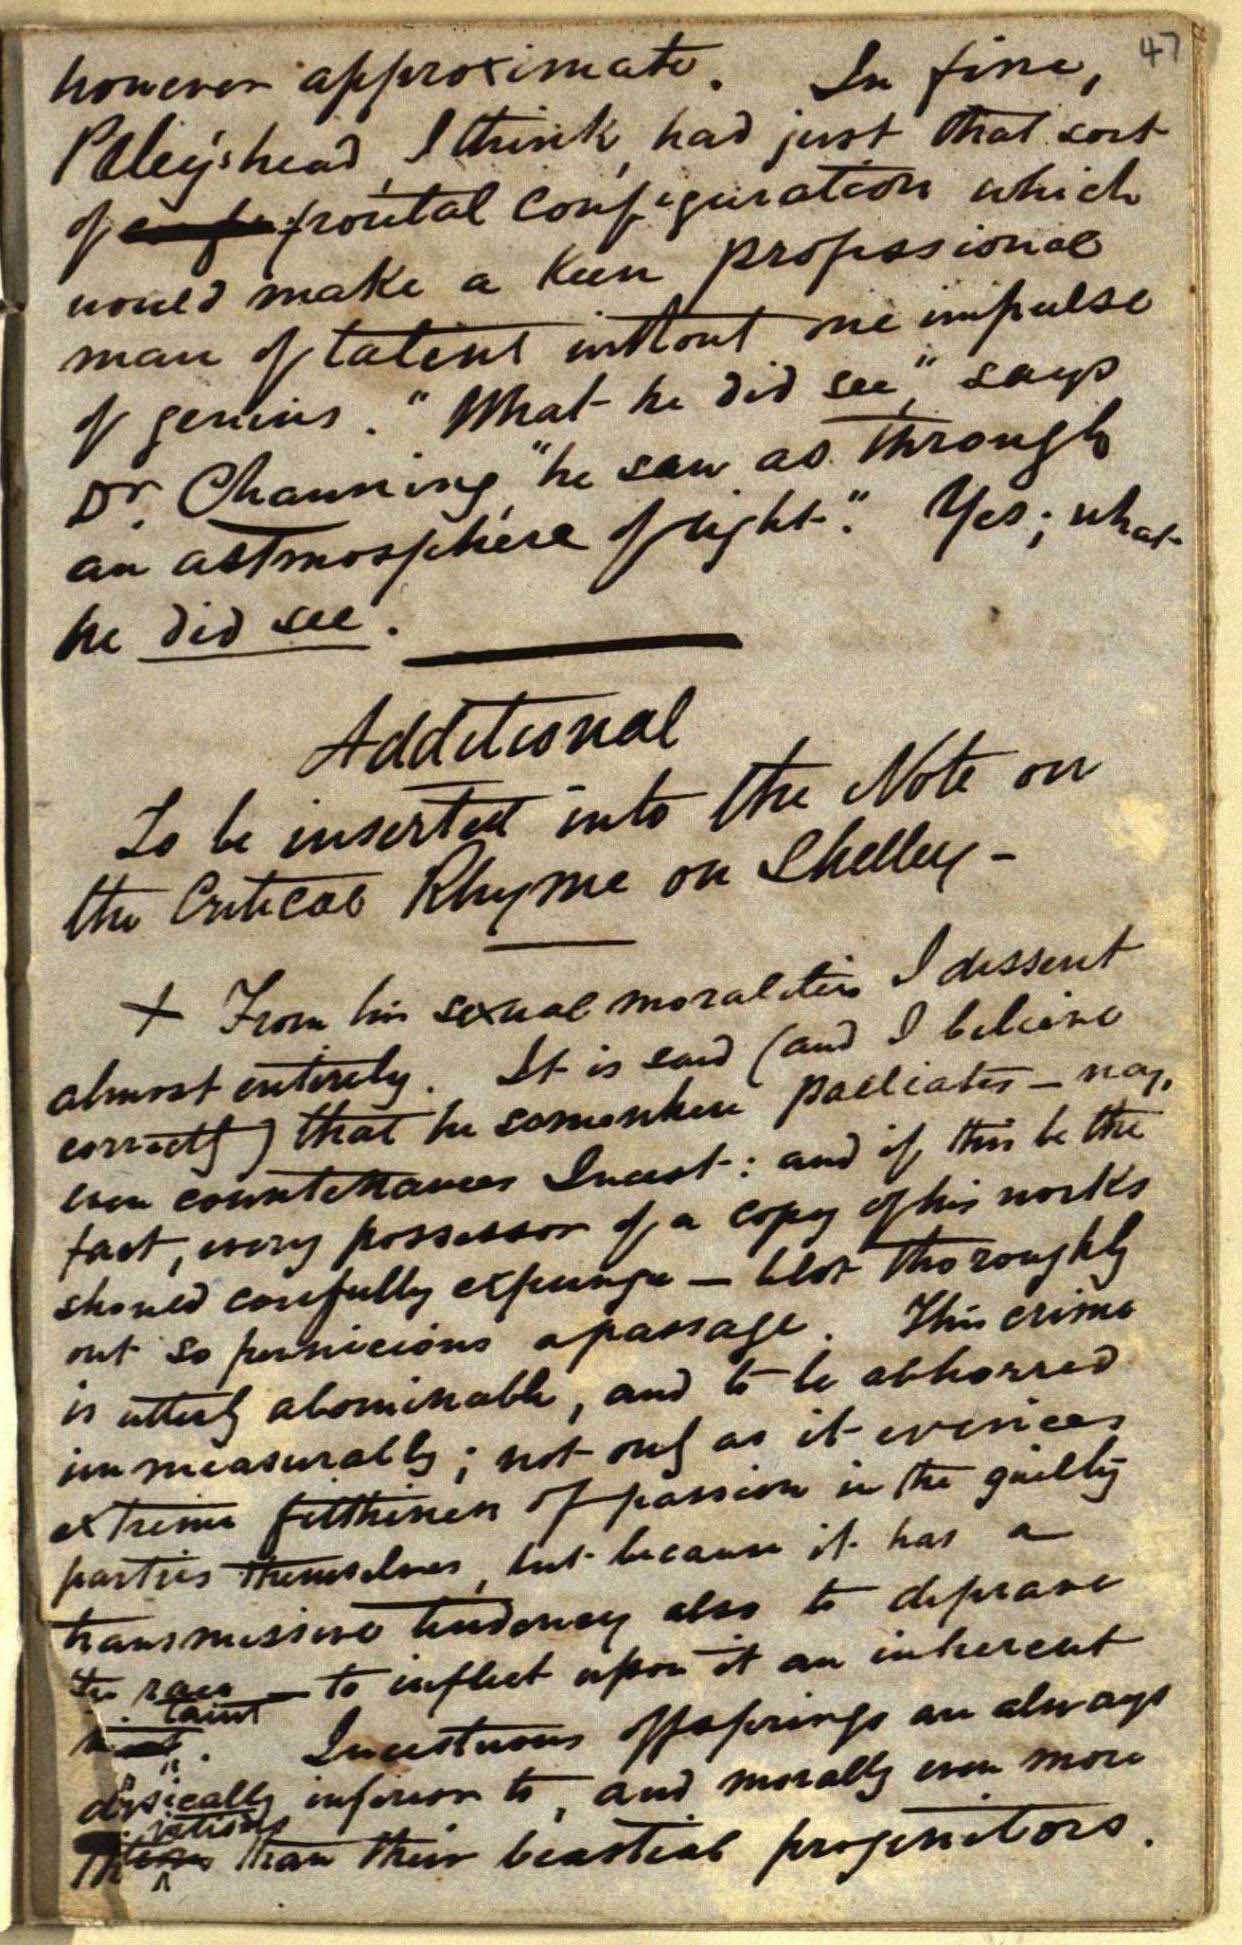 47
however approximate. In fine,
Paley's head, I think, had just that sort
of frontal configuration which
would make a keen professional
man of talent without one impulse
of genius. "What he did see", says
Dr. Channing, "he saw as through
an astmosphere of light". Yes; what
he did see.
Additional
To be inserted into the Note on
the Critical Rhyme on Shelley –
+ From his sexual moralities I dissent
almost entirely. It is said (and I believe
correctly) that he somewhere palliates – nay,
even countenances Incest: and if this be the
fact, every possessor of a copy of his works
should carefully expunge – blot thoroughly
out so pernicious a passage. This crime
is utterly abominable, and to be abhorred
immeasurably; not only as it evinces
extreme filthiness of passion in the guilty
parties themselves, but because it has a
transmissive tendency also to deprave
the race – to inflect upon it an inherent
taint
. Incestuous offsprings are always
inferior to, and morally even more
than their beastial progenitors.